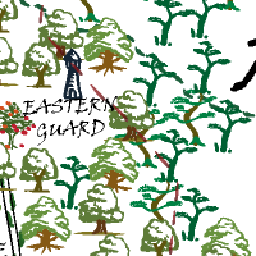 EASTERN
GUARD